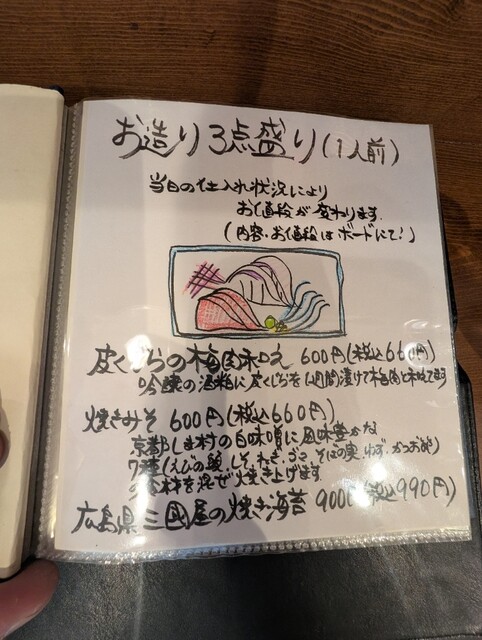 お造り3点盛り(1人前)
当日の仕入れ状況により
お値段が変わります。
(内容・お値段はボードにて!)
皮くじらの梅肉和え 600円(税込660円)
吟醸の酒粕に皮くじらを1週間漬けて梅肉と和えてます
焼きみそ 600円(税込660円)
京都しま村の白味噌に風味豊かな
7種(えびの殻、しそ、ねぎ、ゴマ、そばの実、ゆず、かつお節)
の食材を混ぜ焼き上げます。
広島県三國屋の焼き海苔 900円(税込990円)